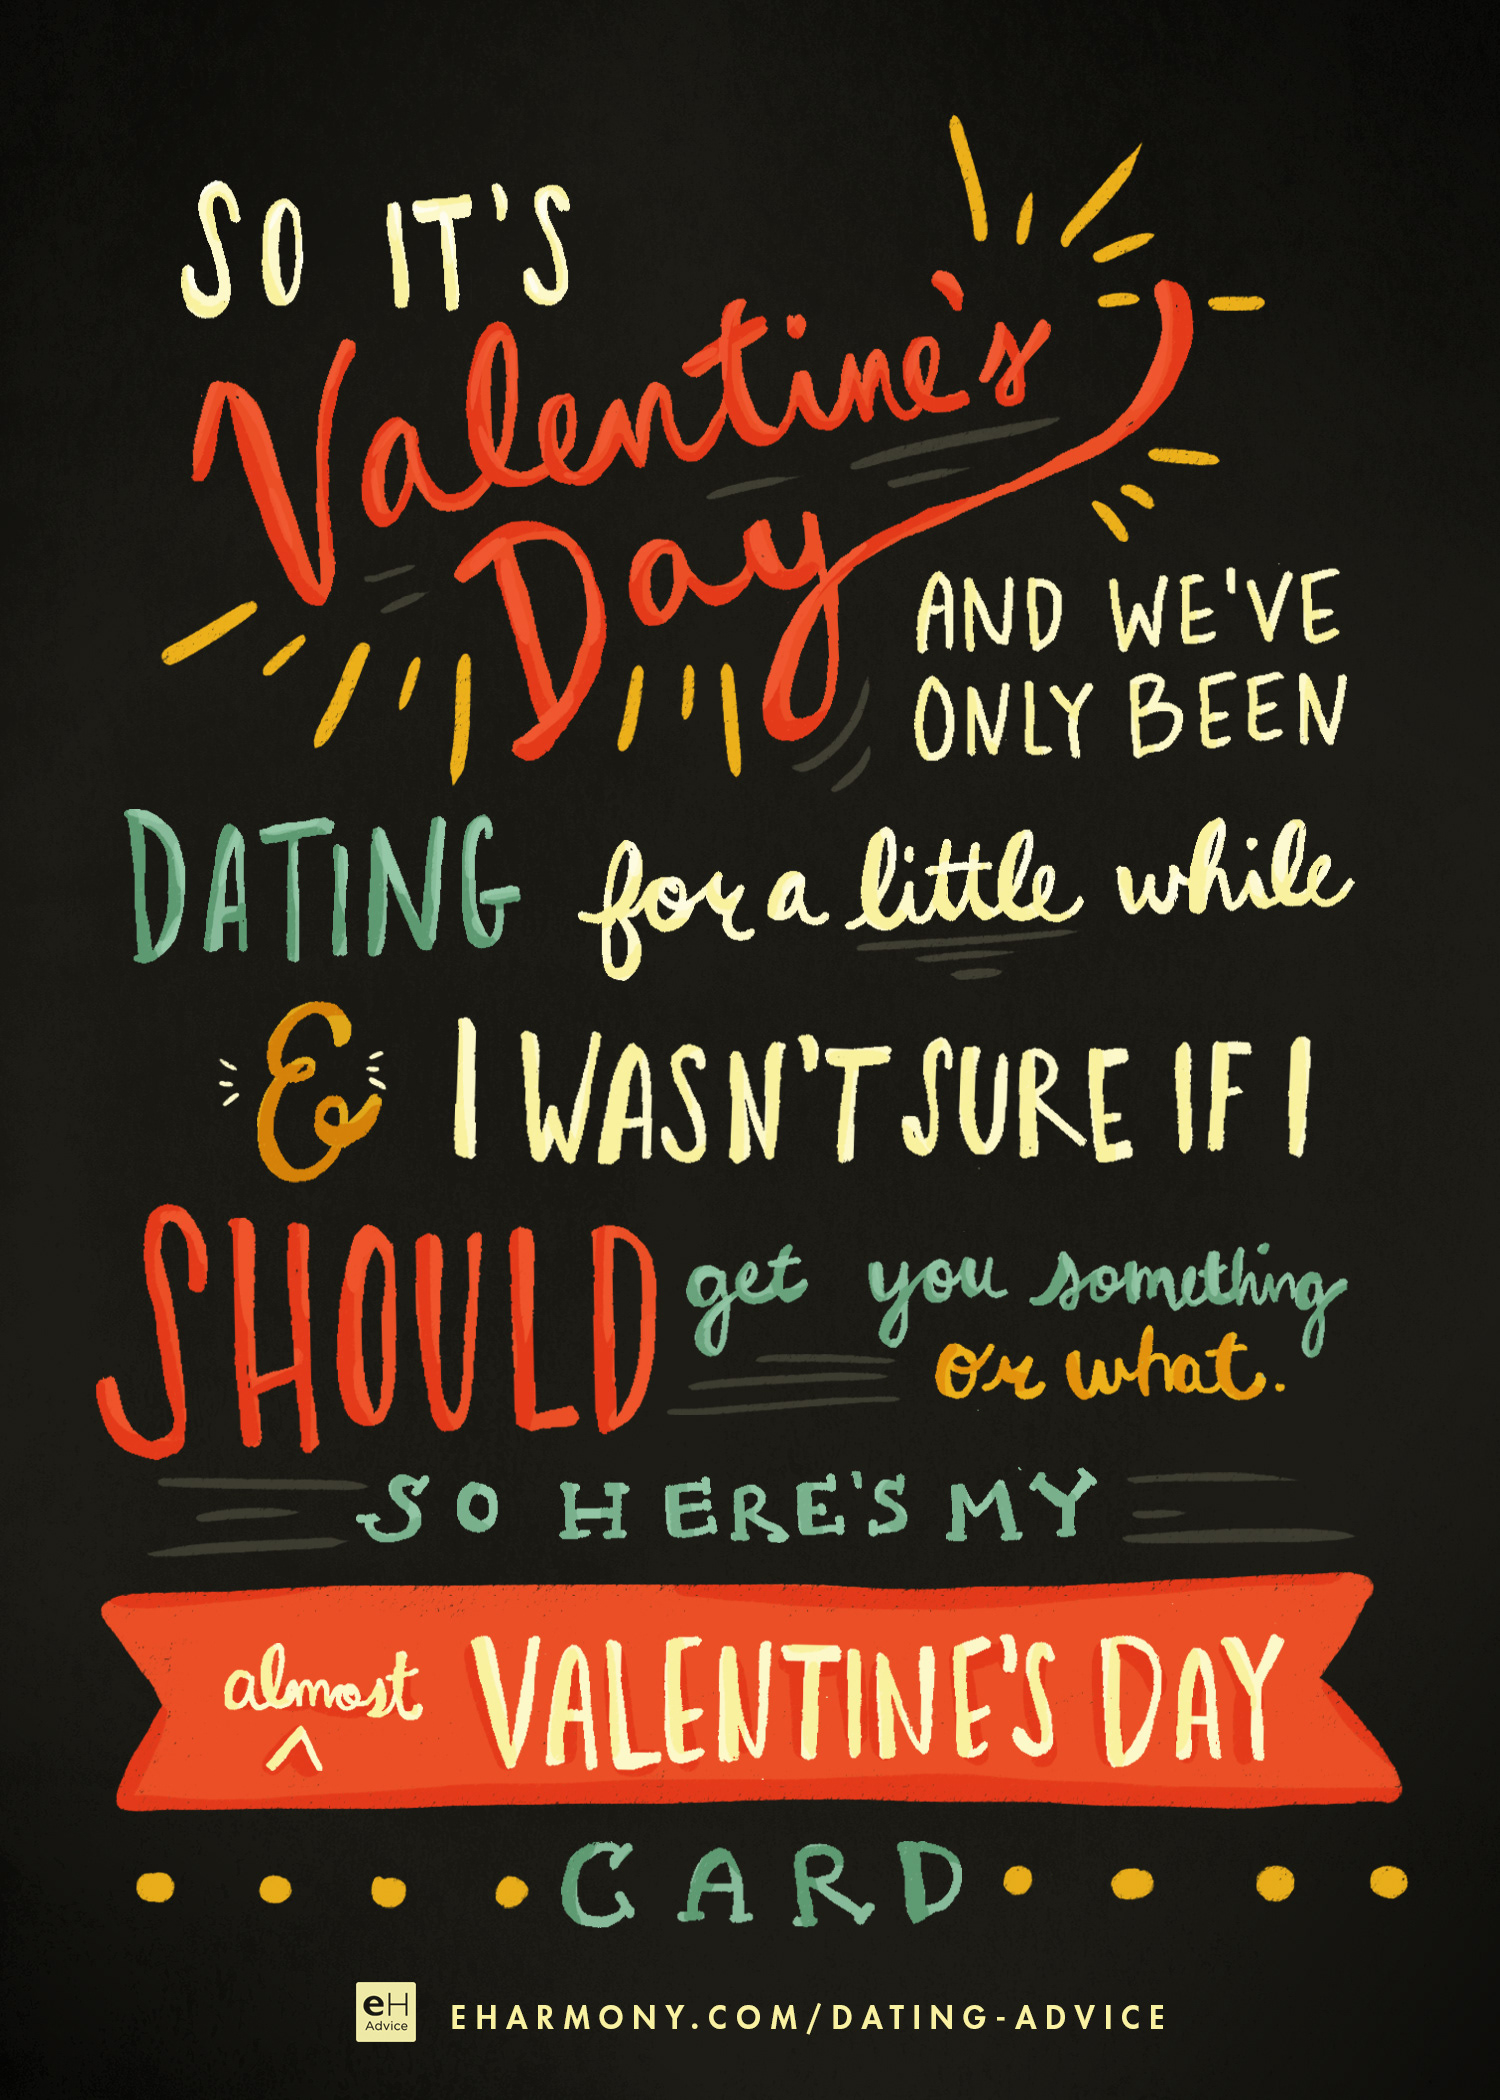 SO IT'S
Valentine's
Day
AND WE'VE
ONLY BEEN
DATING for a little while
& I WASN'T SURE IF I
SHOULD get you something
or what.
SO HERE'S MY
almost VALENTINE'S DAY
^
CARD
eH
Advice
EHARMONY.COM/DATING-ADVICE